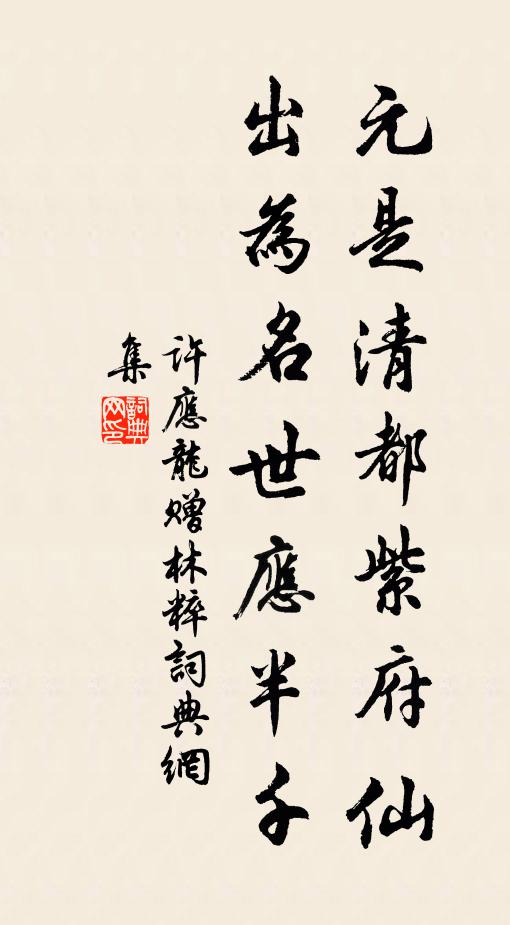 元是清都紫府仙
出為名世應半千
許應龍贈林粹詞典網
集
詞典網印